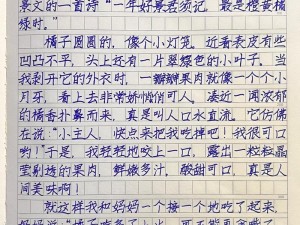 景文的一首诗“一年好景君须记，最是橙黄橘
绿时。”
橘子圆圆的，像个小灯笼。近看表皮有些
凹凸不平，头上还有一片翠绿色的小叶子。当
我剥开它的外衣时，一瓣瓣果肉就像一个个小
月牙，看上去非常娇悄俏可人。凑近一闻浓郁
的橘香扑鼻而来，真是叫人口水直流。它仿佛
在说：“小主人，快点来把我吃掉吧！我很可口
哟！”于是，我轻轻地咬上一口，露出一粒粒晶
莹剔透的果肉，鲜嫩多汁，酸甜可口，真是人
间美味啊！
就这样我和妈妈一个接一个地吃了起来，